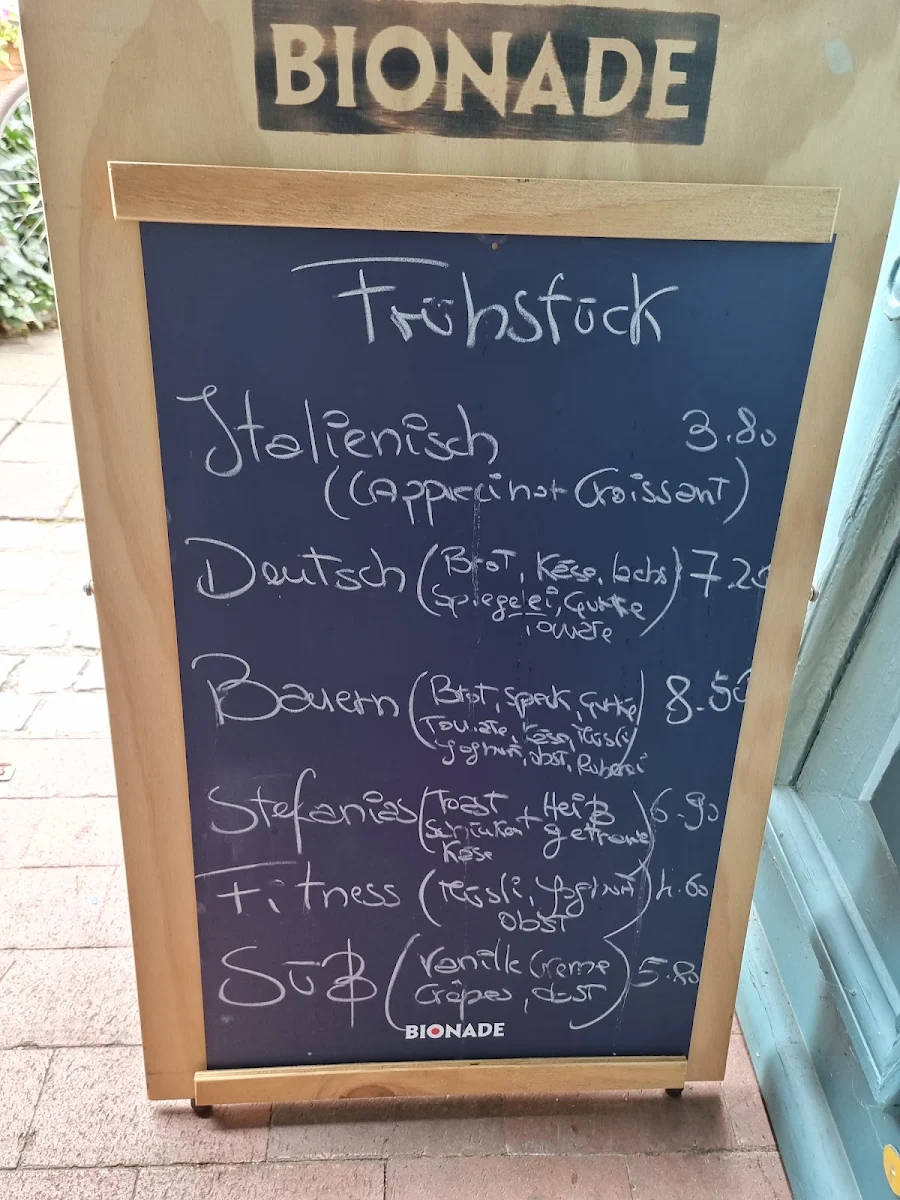 BIONADE
Frühstück
Italienisch 3.80
(Cappuccino+Croissant)
Deutsch (Brot, Käse, Lachs) 7.20
Spiegelei, Gurke
Tomate
Bauern (Brot, Speck, Gurke) 8.50
Tomate, Käse, Müsli
Joghurt, obst, Rührei
Stefanias (Toast + Heiß) 6.90
Schinken getränk
Käse
Fitness (Müsli, Joghurt) 4.60
Obst
Süß (Vanille Creme) 5.80
Crêpes, obst
BIONADE